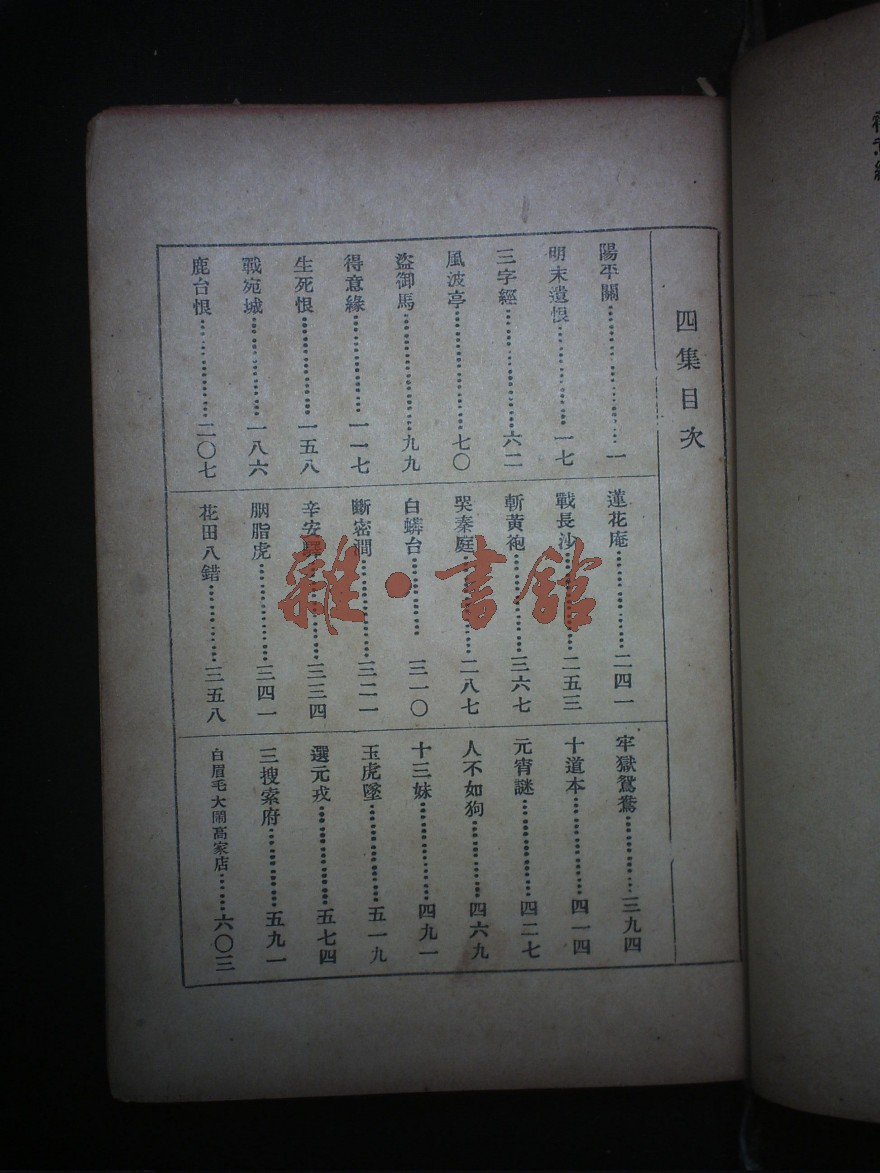 四集目次
陽平關一
明末遺恨一七
三字經六二
風波亭七〇
盜御馬九九
得意緣一一七
生死恨一五八
戰宛城一八六
鹿台恨二〇七
蓮花庵二四一
戰長沙二五三
斬黃袍三六七
哭秦庭二八七
白蟒台三一〇
斷密澗三二一
辛安驛三三四
胭脂虎三四一
花田八錯三五八
牢獄鴛鴦三九四
十道本四一四
元宵謎四二七
人不如狗四六九
十三妹四九一
玉虎墜五一九
選元戎五七四
三搜索府五九一
白眉毛大鬧高家店六〇三
雜·書館